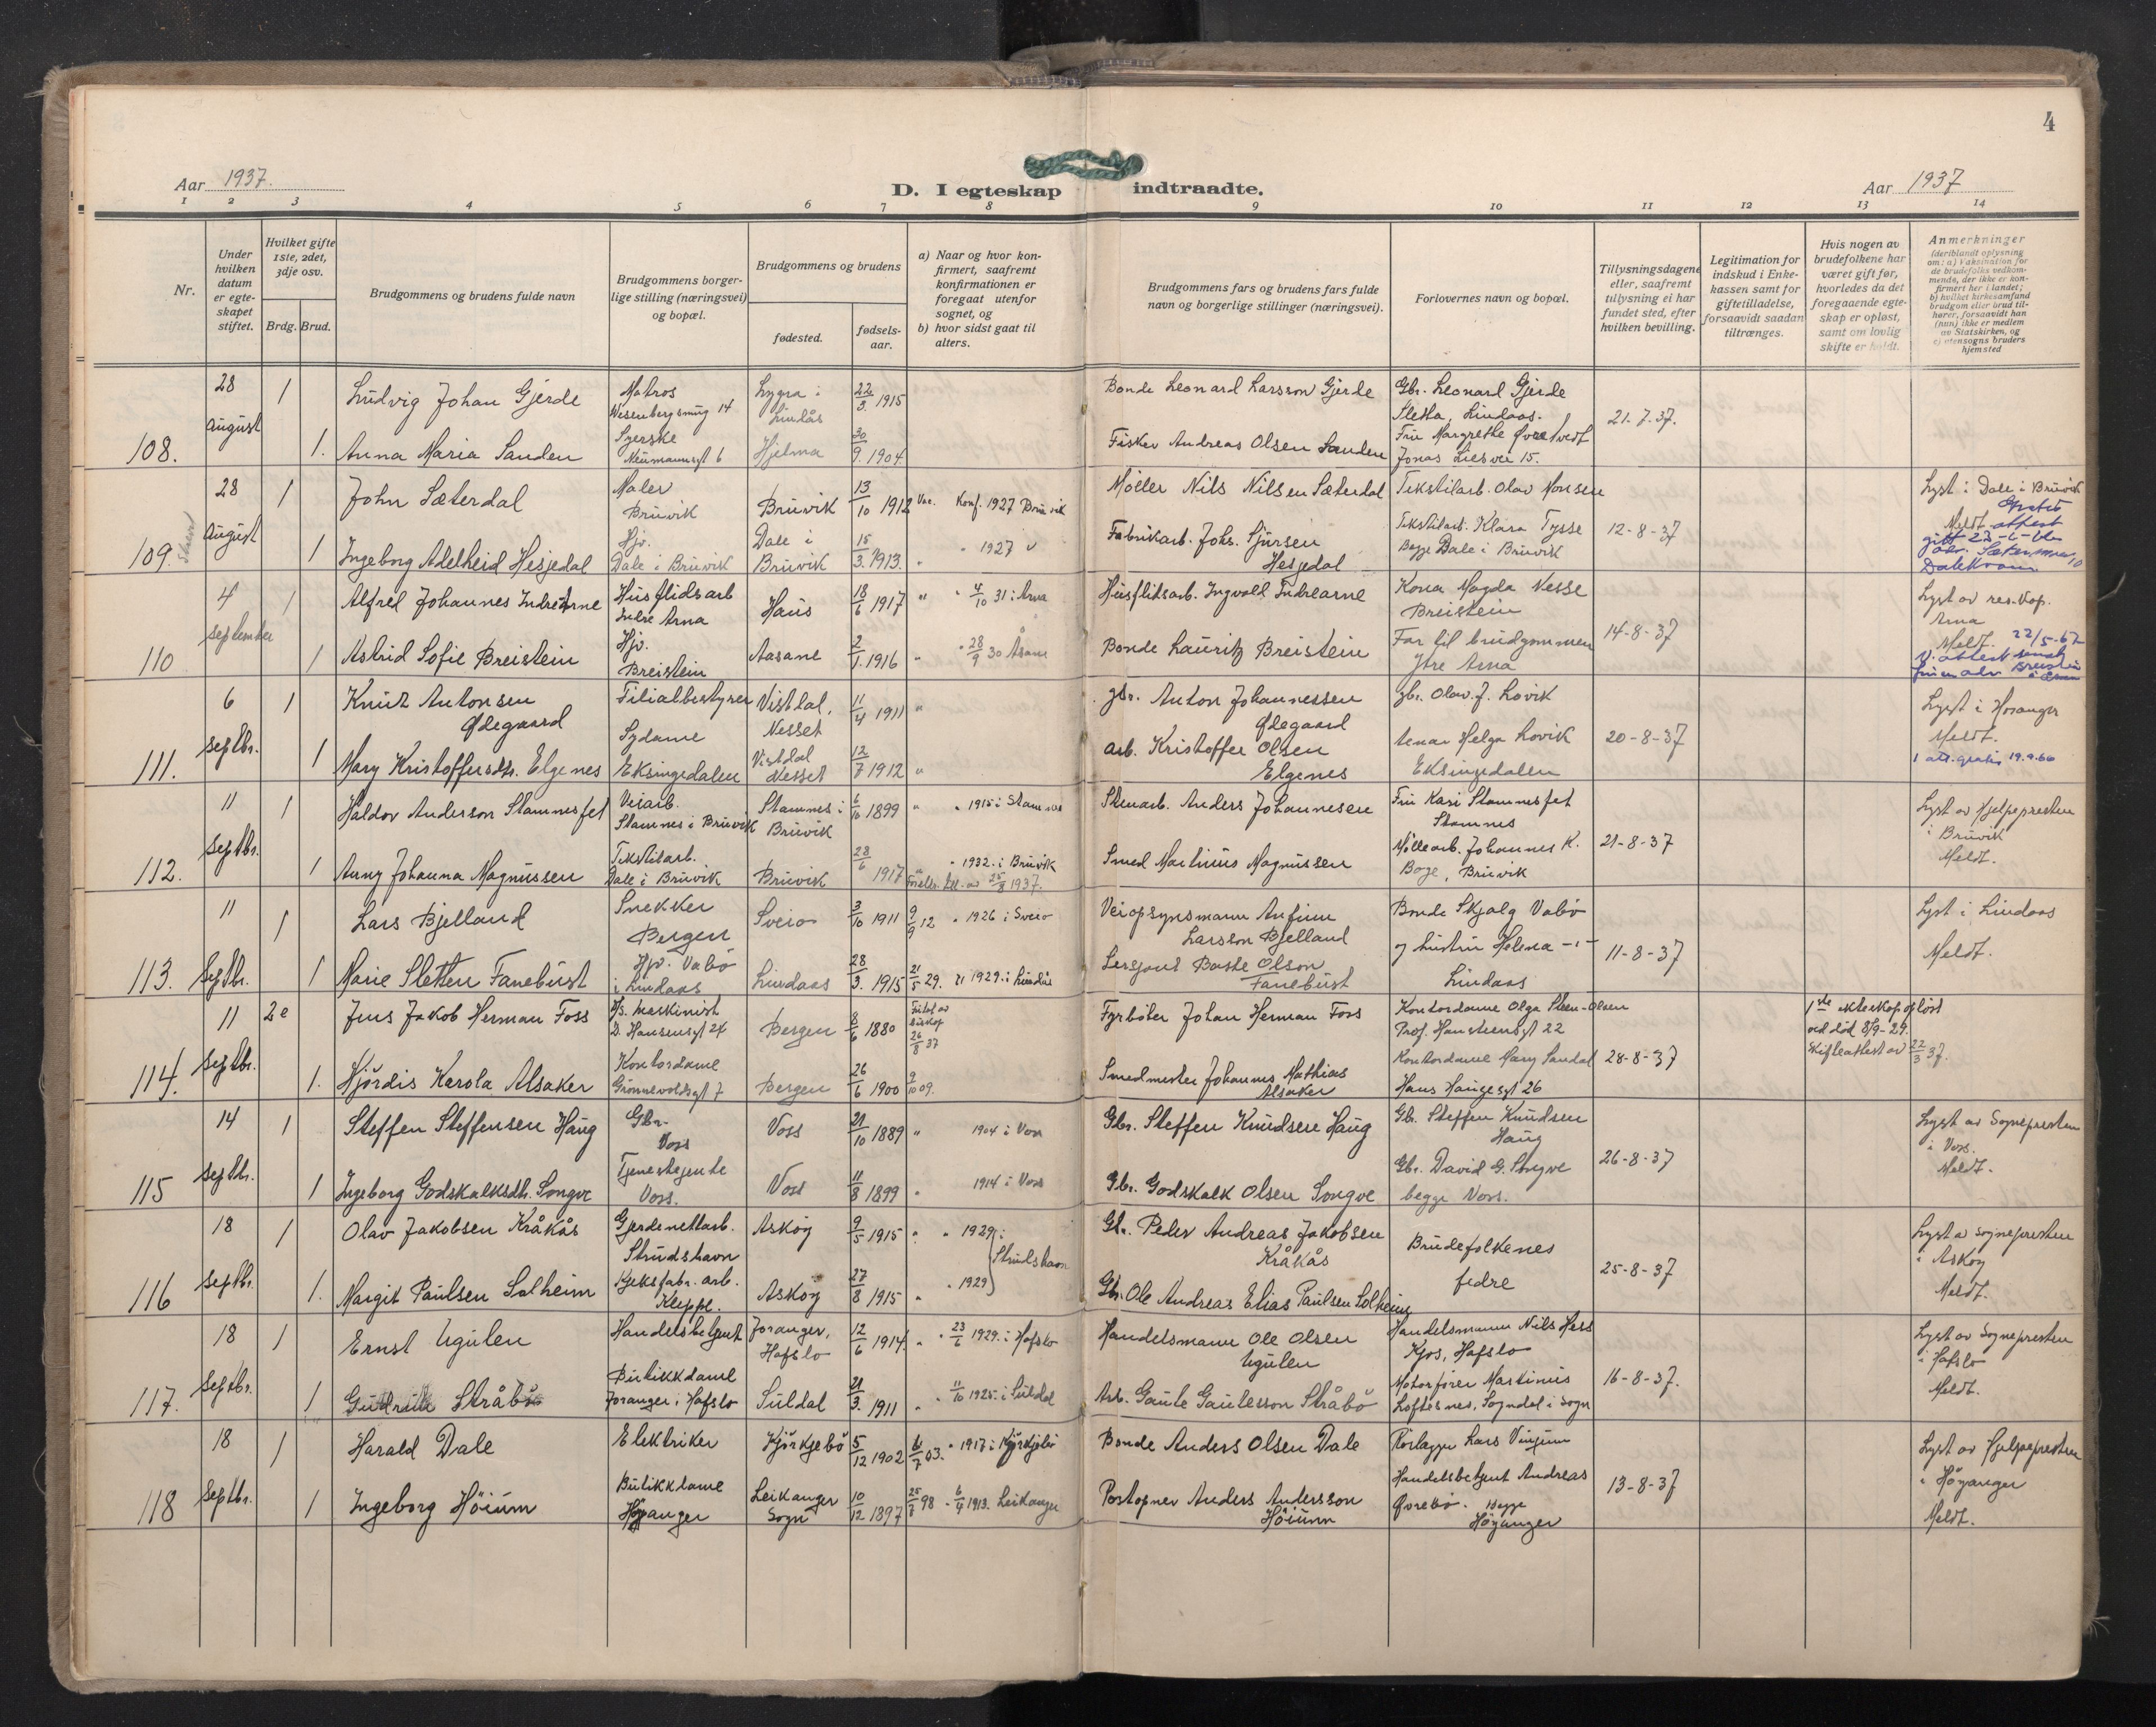 4
Aar 1937.
D. I egteskap indtraadte.
Aar 1937
1 2 3 4 5 6 7 8 9 10 11 12 13 14
Nr.
Under hvilken datum er egteskapet stiftet.
Hvilket gifte 1ste, 2det, 3dje osv.
Brdg. Brud.
Brudgommens og brudens fulde navn
Brudgommens borgerlige stilling (næringsvei) og bopæl.
Brudgommens og brudens
fødested.
fødselsaar.
a) Naar og hvor konfirmert, saafremt konfirmationen er foregaat utenfor sognet, og
b) hvor sidst gaat til alters.
Brudgommens fars og brudens fars fulde navn og borgerlige stillinger (næringsvei).
Forlovernes navn og bopæl.
Tillysningsdagene eller, saafremt tillysning ei har fundet sted, efter hvilken bevilling.
Legitimation for indskud i Enkekassen samt for giftetilladelse, forsaavidt saadan tiltrænges.
Hvis nogen av brudefolkene har været gift før, hvorledes da det foregaaende egteskap er opløst, samt om lovlig skifte er holdt.
Anmerkninger (deriblandt oplysning om: a) Vaksination for de brudefolks vedkommende, der ikke er konfirmert her i landet; b) hvilket kirkesamfund brudgom eller brud tilhører, forsaavidt han (hun) ikke er medlem av Statskirken, og c) utensogns bruders hjemsted
108. 28 August 1
Ludvig Johan Gjerde
Matros
Wesenbergsmug 14
Lygra i Lindås
22/3. 1915
Bonde Leonard Larsson Gjerde
Gbr. Leonard Gjerde
Sletta, Lindaas.
21.7.37.
1. Anna Maria Sanden
Syerske
Neumannsgt 6
Hjelma
30/9. 1904
Fisker Andreas Olsen Sanden
Fru Margrethe Øvretvedt
Jonas Liesvei 15.
109. 28 August 1
John Sæterdal
Maler
Bruvik
Bruvik
13/10 1912
Vac. Konf. 1927 Bruvik
Møller Nils Nilsen Sæterdal
Tekstilarb. Olav Monsen
12-8-37
Lyst i Dale i Bruvik
Meldt.
Gratis attest
Dalekvam
1 Ingeborg Adelheid Hesjedal
Hjv.
Dale i Bruvik
Dale i Bruvik
15/3. 1913.
" " 1927 "
Fabrikarb. Johs. Sjursen Hesjedal
Tekstilarb. Klara Tysse
Begge Dale i Bruvik
110 4 September 1
Alfred Johannes Indre Arne
Husflidsarb
Indre Arna
Haus
18/6 1917
" " 4/10 31 i Arna
Husflidsarb. Ingvald Indrearne
Kona Magda Nesse
Breistein
14-8-37
Lyst av res. kap.
Arna
Meldt. 22/5-67
1 Astrid Sofie Breistein
Hjv.
Breistein
Aasane
2/1. 1916
" " 28/9 30 Åsane
Bonde Lauritz Breistein
Far til brudgommen
Ytre Arna
111. 6 Septbr. 1
Knut Antonsen Ødegaard
Filialbestyrer
Vistdal, Nesset
11/4 1911 "
gbr. Anton Johannessen Ødegaard
gbr. Olav J. Lovik
20-8-37
Lyst i Hosanger
Meldt.
1 att. gratis 19.9.66
1 Mary Kristoffersdtr. Elgenes
Sydame
Eksingedalen
Vistdal Nesset
12/7 1912 "
arb. Kristoffer Olsen Elgenes
Helga Lovik
Eksingedalen
112. 11 Septbr. 1
Haldor Anderson Stamnesfet
Veiarb.
Stamnes i Bruvik
Stamnes i Bruvik
6/10 1899
" " 1915 i Stamnes
Stenarb. Anders Johannesen
Fru Kari Stamnesfet
Stamnes
21-8-37
Lyst av Hjelpepresten
i Bruvik
Meldt.
1 Anny Johanna Magnussen
Tekstilarb.
Dale i Bruvik
Bruvik
28/6 1917
" " 1932. i Bruvik
Foreldr. till. av 25/8 1937.
Smed Martinus Magnussen
Møllearb. Johannes K.
Boge, Bruvik
113. 11 Septbr. 1
Lars Bjelland
Snekker
Bergen
Sveio
3/10 1911
9/9 12 " 1926 i Sveio
Veiopsynsmann Anfinn Larsson Bjelland
Bonde Skjalg Vabø
11-8-37
Lyst i Lindaas
Meldt.
1 Marie Sletten Fanebust
Hjv. Vabø
i Lindaas
Lindaas
28/3. 1915
21/5 29. " 1929. i Lindås
Sersjant Baste Olson Fanebust
og hustru Helena -"-
Lindaas
114. 11 Septbr. 2e
Jens Jakob Herman Foss
D/s. maskinist
D. Hansensgt 24
Bergen
8/6 1880
Fritat av biskop 26/8 37
Fyrbøter Johan Herman Foss
Kontordame Olga Steen-Olsen
Prof. Hansteensgt 22
28-8-37
1ste ekteskap opløst
ved død 8/9-29.
Skifteattest av 22/3 37.
1. Hjördis Karola Alsaker
Kontordame
Grønnevoldsgt 7
Bergen
26/6 1900
9/10 09.
Smedmester Johannes Mathias Alsaker
Kontordame Mary Sandal
Hans Haugesgt 26
115 14 Septbr. 1
Steffen Steffensen Haug
Gbr.
Voss
Voss
21/10 1889
" 1904 i Voss
Gbr. Steffen Knudsen Haug
Gbr. Steffen Knudsen
Haug
26-8-37
Lyst av Sognepresten
i Voss.
Meldt.
1 Ingeborg Godskalksdtr. Songve
Tjenestejente
Voss.
Voss
11/8 1899
" 1914 i Voss
Gbr. Godskalk Olsen Songve
Gbr. David G. Songve
begge Voss.
116 18 Septbr. 1
Olav Jakobsen Kråkås
Gjerdenettarb.
Strudshavn
Askøy
9/5 1915
" " 1929 i Strudshavn
Gbr. Peder Andreas Jakobsen Kråkås
Brudefolkenes
fedre
25-8-37
Lyst av Sognepresten
i Askøy
Meldt.
1. Margit Paulsen Solheim
Kjeksfabr. arb.
Kleppe.
Askøy
27/8 1915
" " 1929
Gbr. Ole Andreas Elias Paulsen Solheim
117. 18 Septbr. 1
Ernst Ugulen
Handelsbetjent
Joranger, Hafslo
12/6 1914.
" " 23/6 1929. i Hafslo
Handelsmann Ole Olsen Ugulen
Handelsmann Nils Hess
Kjos, Hafslo
16-8-37.
Lyst av Sognepresten
i Hafslo
Meldt.
1 Gudrun Stråbø
Butikkdame
Joranger i Hafslo
Suldal
21/3. 1911
" " 11/10 1925. i Suldal
Arb. Gaute Gautesson Stråbø
Motorfører Martinus
Loftesnes, Sogndal i Sogn
118 18 Septbr. 1
Harald Dale
Elektriker
Kjørkjebø
5/12 1902
6/7 03. " 1917 i Kjørkjebø
Bonde Anders Olsen Dale
Rørlegger Lars Vinjum
13-8-37
Lyst av Hjelpepresten
i Høyanger
Meldt.
1 Ingeborg Höium
Butikkdame
Høyanger
Leikanger Sogn
10/12 1897
25/8 98 " 6/9 1913. Leikanger
Postopner Anders Andersson Höiumn
Handelsbetjent Andreas
Øvrebø. Begge
Høyanger